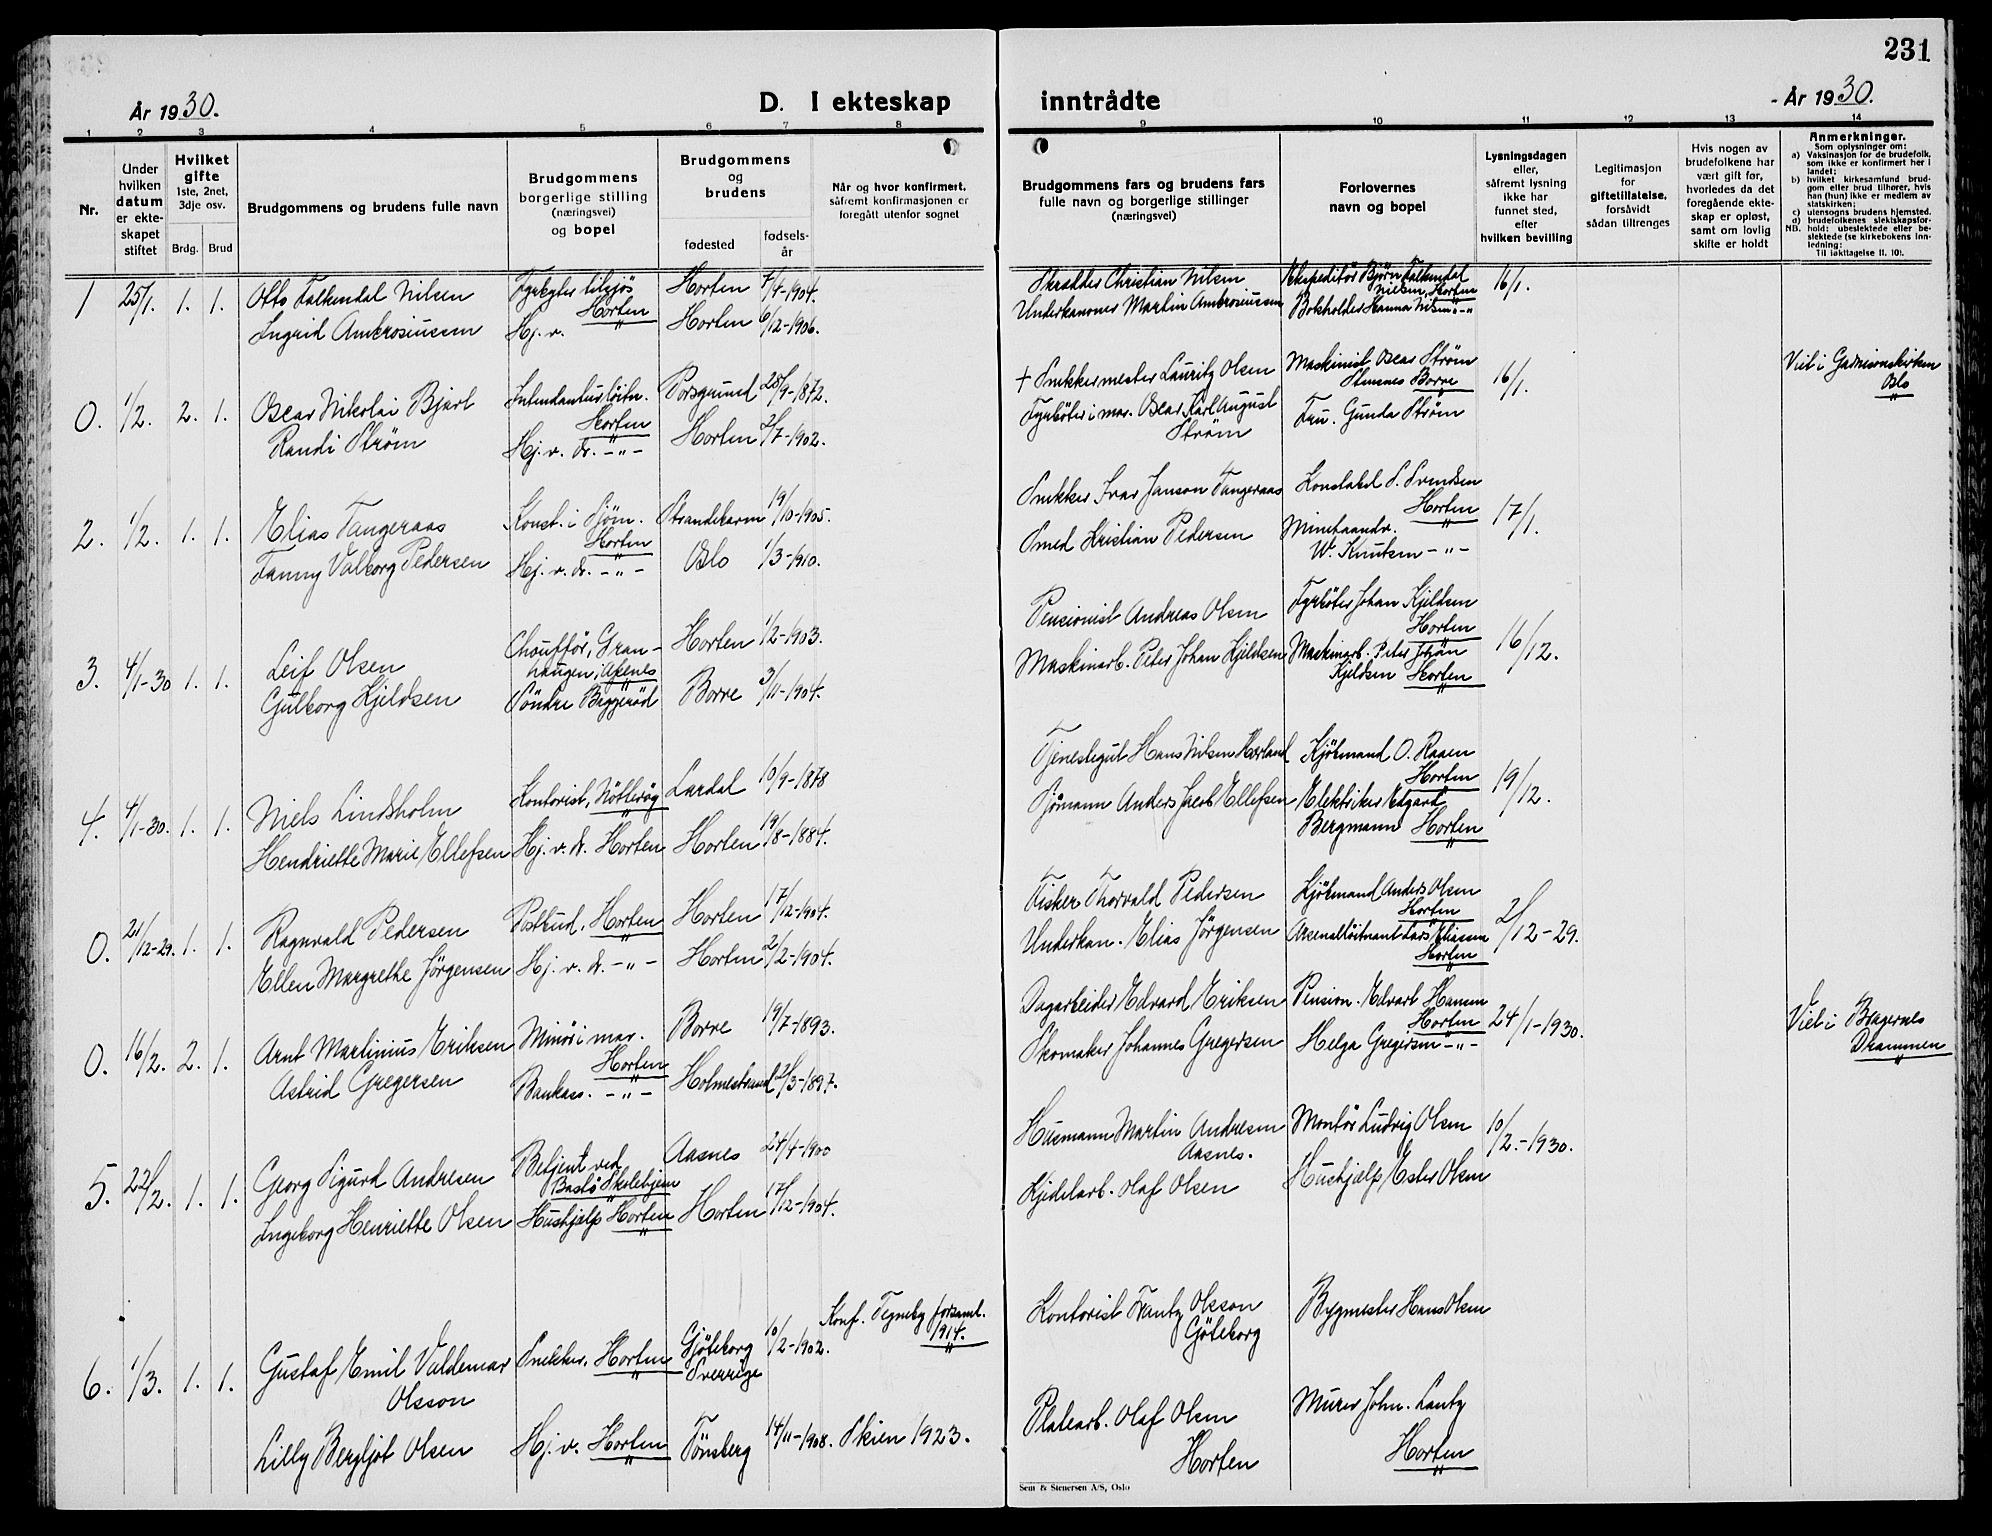 231
År 1930.
D. I ekteskap inntrådte
År 1930.
1 2 3 4 5 6 7 8 9 10 11 12 13 14
Nr.
Under hvilken datum er ekteskapet stiftet
Hvilket gifte
1ste, 2net, 3dje osv.
Brdg. Brud
Brudgommens og brudens fulle navn
Brudgommens borgerlige stilling (næringsvei) og bopel
Brudgommens og brudens
fødested
fødselsår
Når og hvor konfirmert, såfremt konfirmasjonen er foregått utenfor sognet
Brudgommens fars og brudens fars fulle navn og borgerlige stillinger (næringsvei)
Forlovernes navn og bopel
Lysningsdagen eller, såfremt lysning ikke har funnet sted, efter hvilken bevilling
Legitimasjon for giftetillatelse, forsåvidt sådan tiltrenges
Hvis nogen av brudefolkene har vært gift før, hvorledes da det foregående ekteskap er opløst, samt om lovlig skifte er holdt
Anmerkninger.
Som oplysninger om:
a) Vaksinasjon for de brudefolk, som ikke er konfirmert her i landet;
b) hvilket kirkesamfund brudgom eller brud tilhører, hvis han (hun) ikke er medlem av statskirken;
c) utensogns brudens hjemsted.
d) brudefolkenes slektskapsforhold: ubeslektede eller beslektede (se kirkebokens innledning:
NB. Til iakttagelse II. 10).
1 25/1. 1. 1. Otto Falkendal Nilsen
Horten 7/4-1904.
Skrædder Christian Nilsen
Ekspeditör Björn Falkendal Nilsen, Horten
16/1.
Ingrid Ambrosiussen
Hj. v. Horten 6/12-1906.
Underkanoner Martin Ambrosiussen
Bokholder Hanna Nilsen -"-
0. 1/2. 2. 1. Oscar Nikolai Bjarl
Intendanturlöitn. Horten
Porsgrund 28/9-1872.
+ Snekkermester Lauritz Olsen
Maskinist Oscar Strøm
Borre
16/1.
Viet i Garnisonskirken Oslo
Randi Strøm
Hj. v. d. -"- Horten 2/7-1902.
Fyrböter i mar. Oscar Karl August Strøm
Fru. Gunda Strøm
2. 1/2. 1. 1. Elias Tangeraas
Konst. i Sjøm. Horten
Strandebarm 19/10-1905.
Snekker Ivar Janson Tangeraas
Konstabel S. Svendsen Horten
17/1.
Fanny Valborg Pedersen
Hj. v. d. -"- Oslo 1/3-1910.
Smed Kristian Pedersen
Minehaandv. W. Knutsen -"-
3. 4/1-30 1. 1. Leif Olsen
Chouffför, Granhaugen, Axenes
Horten 1/2-1903.
Pensionist Andreas Olsen
Fyrböter Johan Kjeldsen Horten
16/12.
Gulborg Kjeldsen
Söndre Borre 3/11-1904.
Maskinarb. Peter Johan Kjeldsen
Maskinarb. Peter Johan Kjeldsen Horten
4. 4/1-30. 1. 1. Niels Lindsholm
Kontorist, Nötterög
Lardal 10/9-1878
Tjenestegut Hans Nilsen
Kjöbmand O. Raaen Horten
19/12.
Hendriette Marie Ellefsen
Hj. v. d. Horten Horten 19/8-1884.
Sjømann Anders Jacob Ellefsen
Elektriker Edgard Bergmann Horten
0. 21/12-29. 1. 1. Ragnvald Pedersen
Postbud, Horten Horten 17/12-1904.
Fisker Thorvald Pedersen
Kjöbmand Anders Olsen Horten
21/12-29.
Ellen Margrethe Jörgensen
Hj. v. d. -"- Horten 2/2-1904.
Underkan. Elias Jörgensen
Arsenalløitnant Lars Eliassen Horten
0. 16/2. 2. 1. Arnt Martinius Eriksen
Minör i mar. Horten
Borre 19/7-1893.
Dagarbeider Edvard Eriksen
Pension. Edvart Hansen Horten
24/1-1930.
Viet i Bragernes Drammen
Astrid Gregersen
Bankass. -"- Holmestrand 21/3-1897.
Skomaker Johannes Gregersen
Helga Gregersen -"-
5. 22/2. 1. 1. Georg Sigurd Andresen
Betjent ved Bastö Skolehjem
Aasnes 24/4-1900
Husmann Martin Andresen Aasnes.
Montör Ludvig Olsen
10/2.-1930.
Ingeborg Henriette Olsen
Hushjælp Horten Horten 17/12-1904.
Kjedelarb. Olaf Olsen
Hushjælp Ester Olsen
6. 1/3. 1. 1. Gustaf Emil Valdemar Olsson
Snekker, Horten
Gjöteborg Sverrige 10/2-1902.
Konf. Tegneby forsaml. 1914.
Kontorist Frantz Olsson Göteborg
Bygmester Hans Olsen
Lilly Bergljot Olsen
Hj. v. Horten Tönsberg 14/11-1908. Skien 1923.
Platearb. Olaf Olsen Horten
Murer John. Lantz Horten
Sem & Stenersen A/S, Oslo